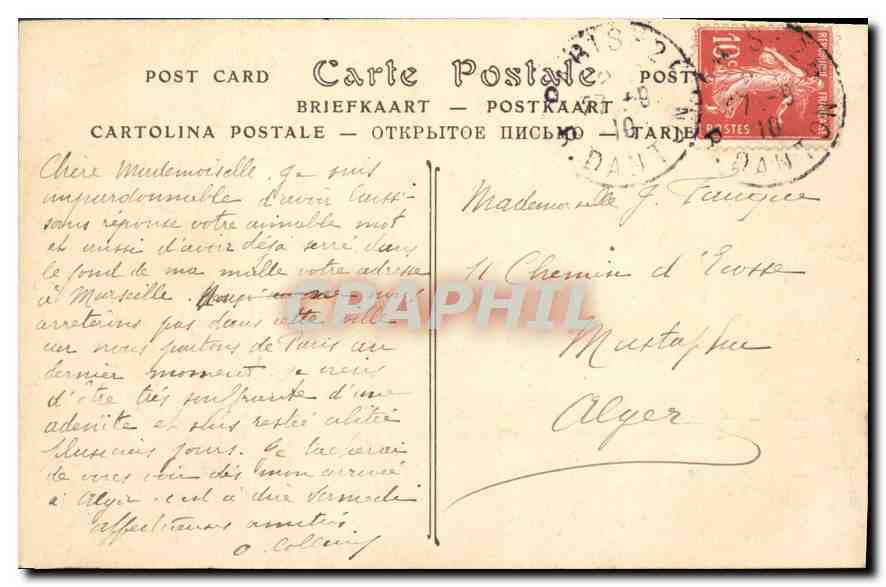 POST CARD Carte Postale POST
BRIEFKAART — POSTKAART
CARTOLINA POSTALE — ОТКРЫТОЕ ПИСЬМО — TARJE
PARIS
27 - 9
10
R. DANTON
10c
POSTES
27 - 9
10
R. DANTON
Chère Mademoiselle, je suis
impardonnable d'avoir laissé
sans réponse votre aimable mot
et aussi d'avoir déjà serré dans
le fond de ma malle votre adresse
à Marseille. nous
arreterons pas dans cette ville
car nous partons de Paris au
dernier moment. Je viens
d'être très souffrante d'une
adénite et suis restée alitée
plusieurs jours. Je tacherai
de vous voir dès mon arrivée
à Alger c'est à dire Vermedi
affectueuses amitiés
Mademoiselle J.
11 Chemin d'Ecosse
Mustapha
Alger
CPAPHIL